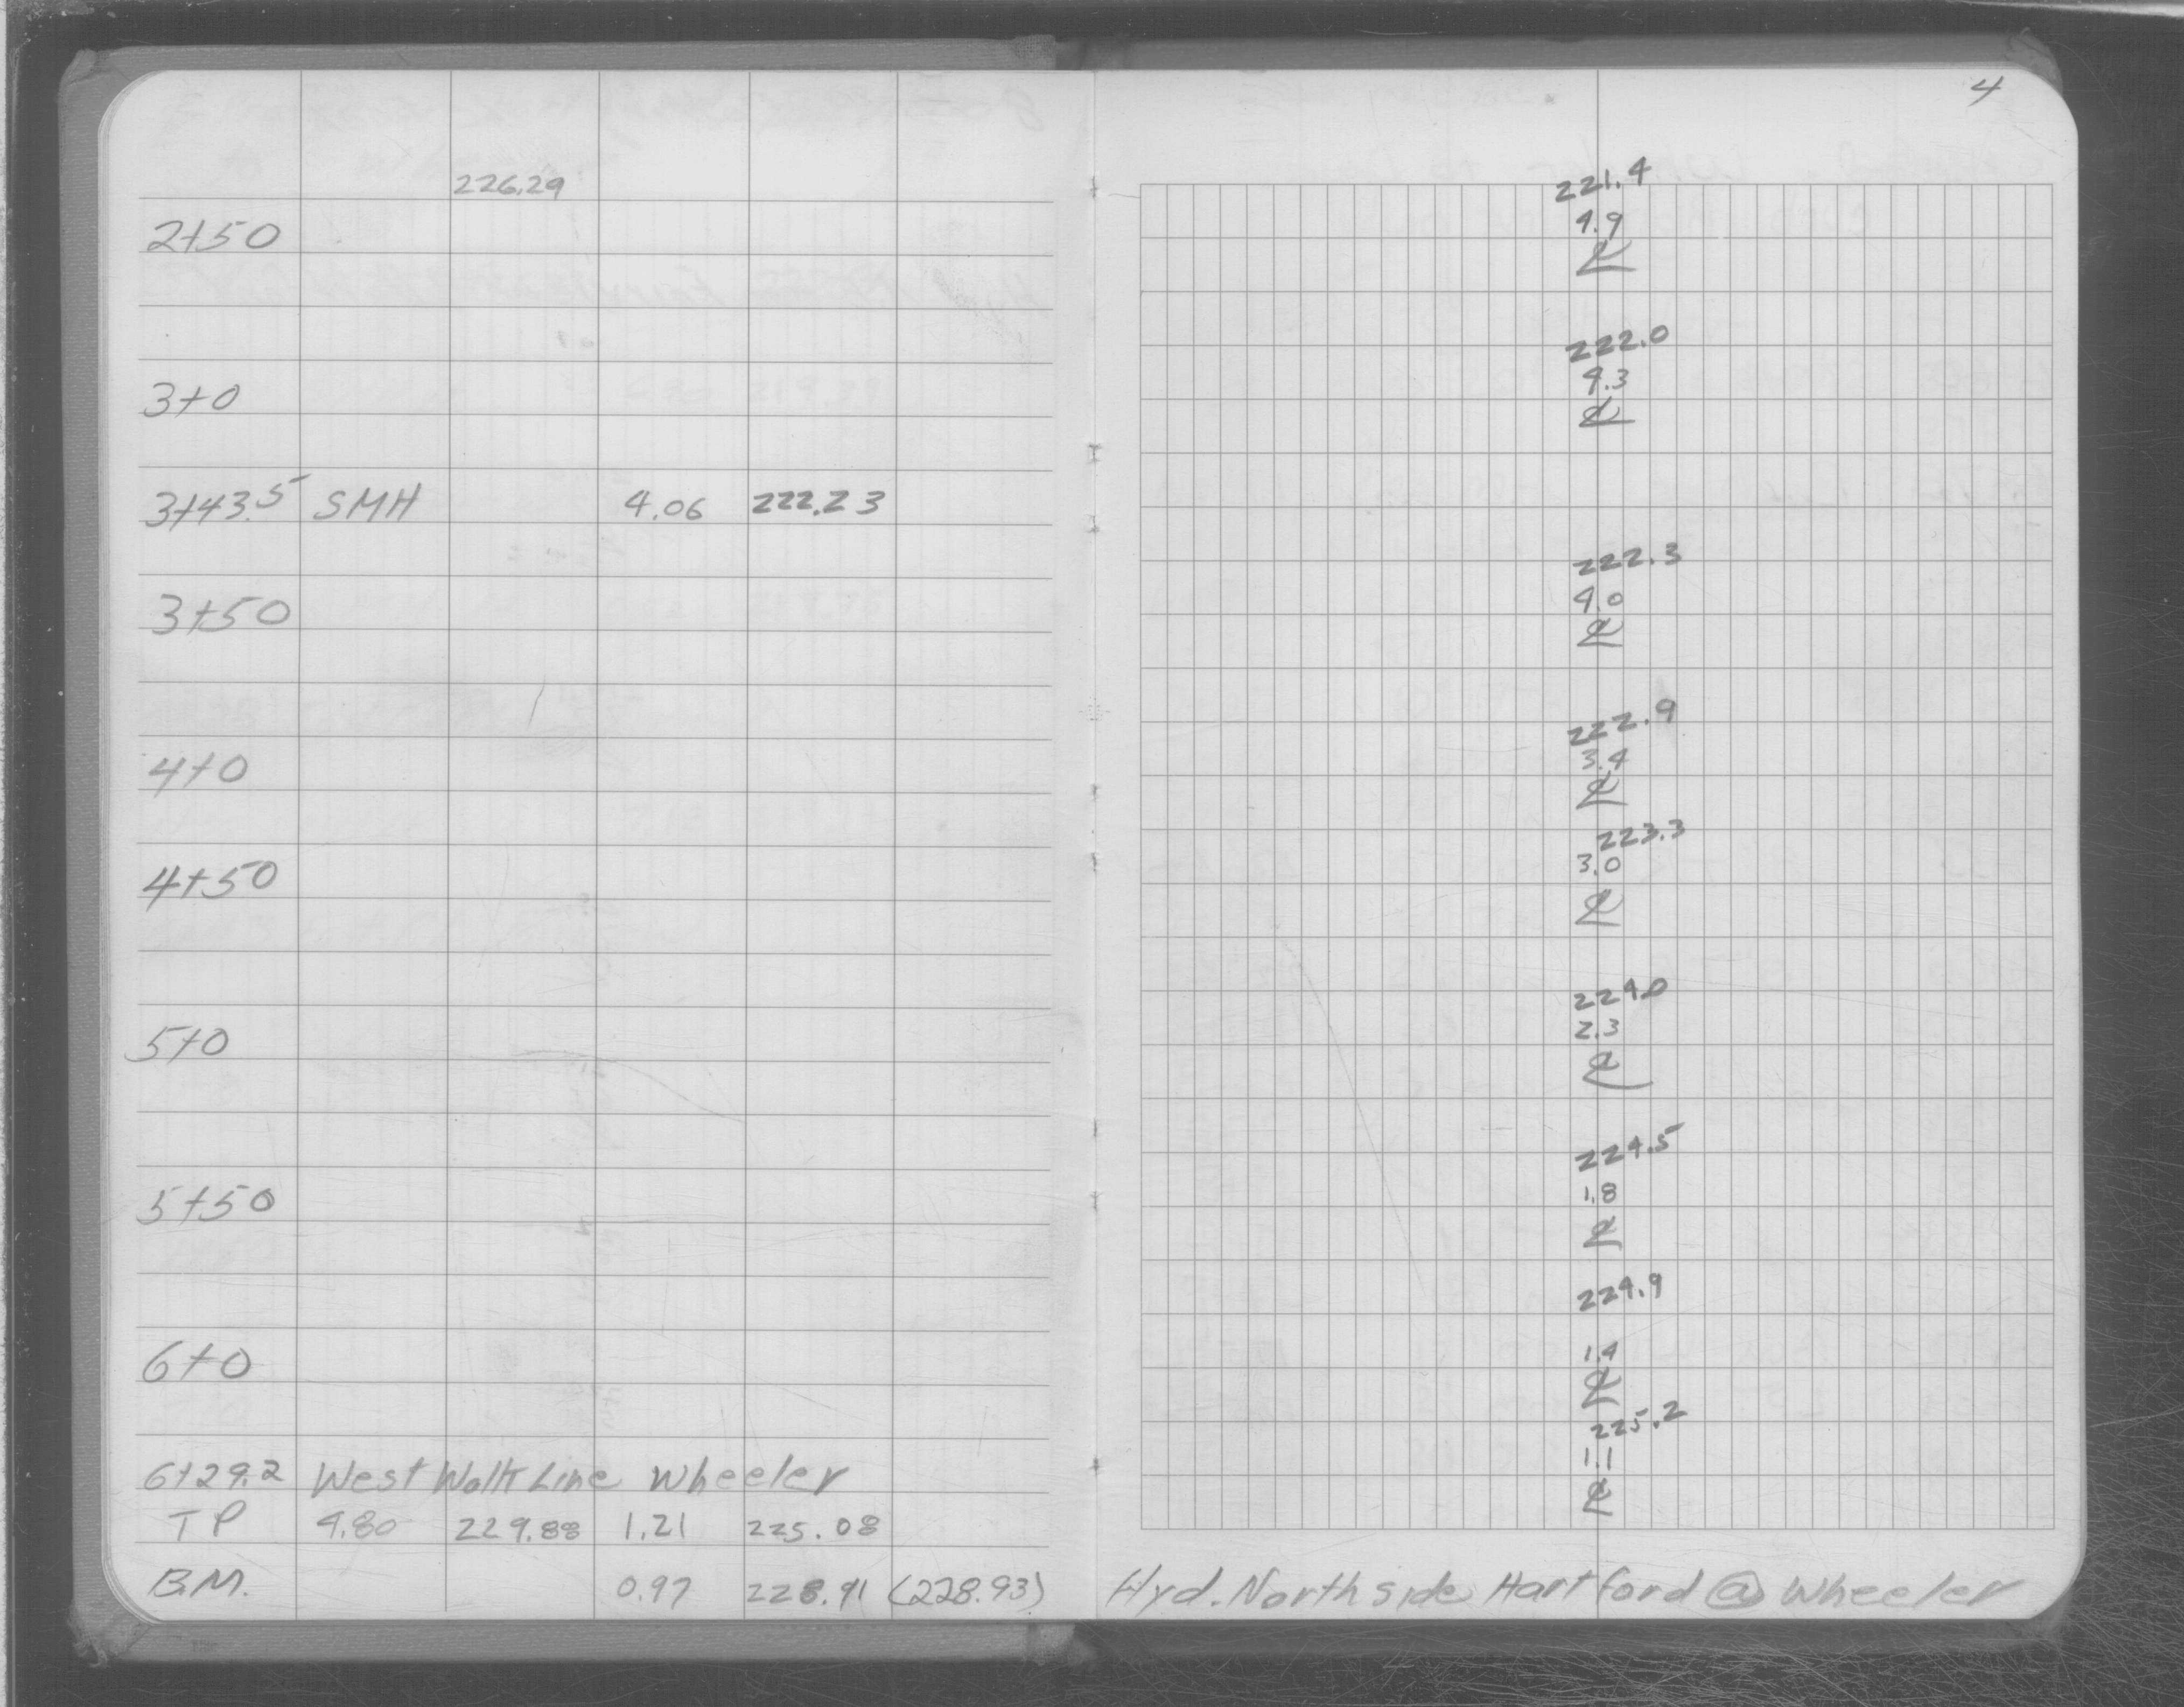 226.29
2+50
3+0
3+43.5 SMH 4.06 222.23
3+50
4+0
4+50
5+0
5+50
6+0
6+29.2 West Walk Line Wheeler
TP 4.80 229.88 1.21 225.08
B.M. 0.97 228.91 (228.93)
4
221.4
4.9
℄
222.0
4.3
℄
222.3
4.0
℄
222.9
3.4
℄
223.3
3.0
℄
224.0
2.3
℄
224.5
1.8
℄
224.9
1.4
℄
225.2
1.1
℄
Hyd. North side Hartford @ Wheeler